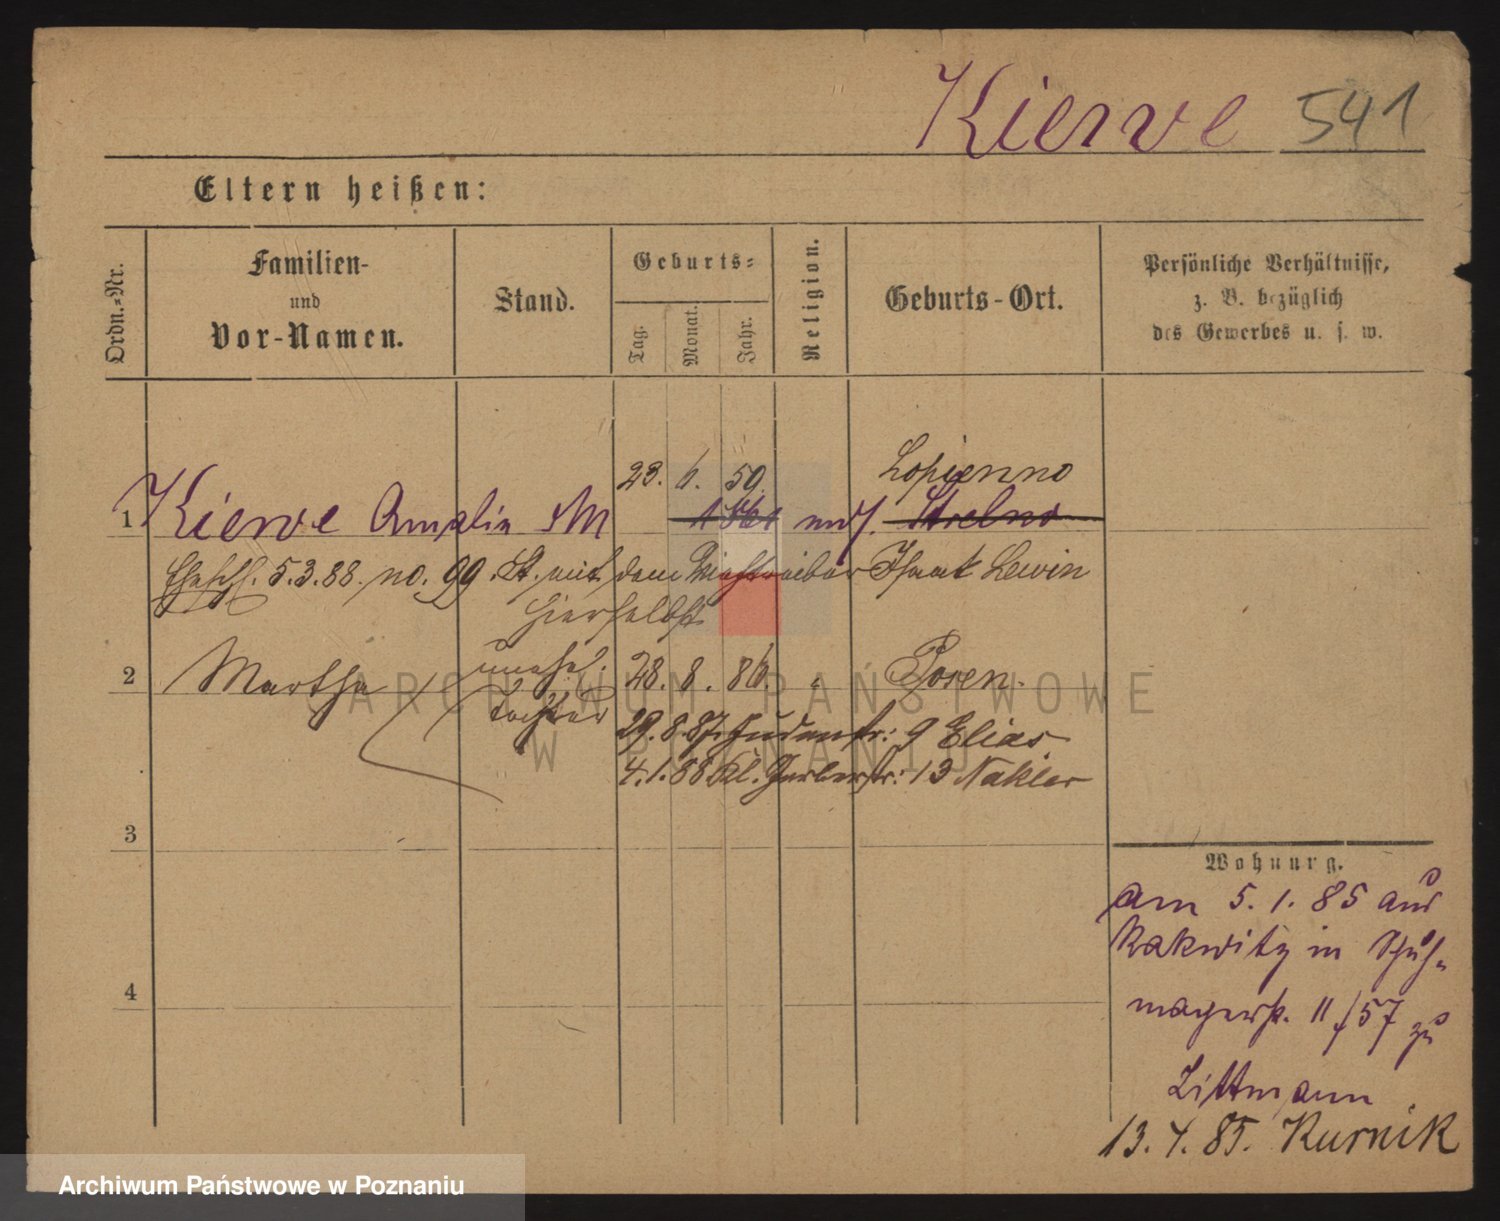 Kierve 541
Eltern heißen:
Ordn.-Nr.
Familien-
und
Vor-Namen.
Stand.
Geburts-
Tag.
Monat.
Jahr.
Religion.
Geburts-Ort.
Persönliche Verhältnisse,
z. B. bezüglich
des Gewerbes u. s. w.
23. 6. 59. Lopienno
1 Kierve Amalie 1861 mos. Strelno
Ehesch. 5.3.88. no. 99. St. mit dem Isaak Lewin
hierselbst
2 Martha unehel. 28. 8. 86. " Posen.
Tochter
29. 8. 87. Judenstr: 9 Elias
4. 1. 88 Kl. Gerberstr: 13 Nakler
3
4
Wohnung.
am 5. 1. 85 aus
Rakwitz in Schuh-
macherstr. 11/57 zu
Littmann
13. 4. 85. Kurnik
ARCHIWUM PAŃSTWOWE
W POZNANIU
Archiwum Państwowe w Poznaniu